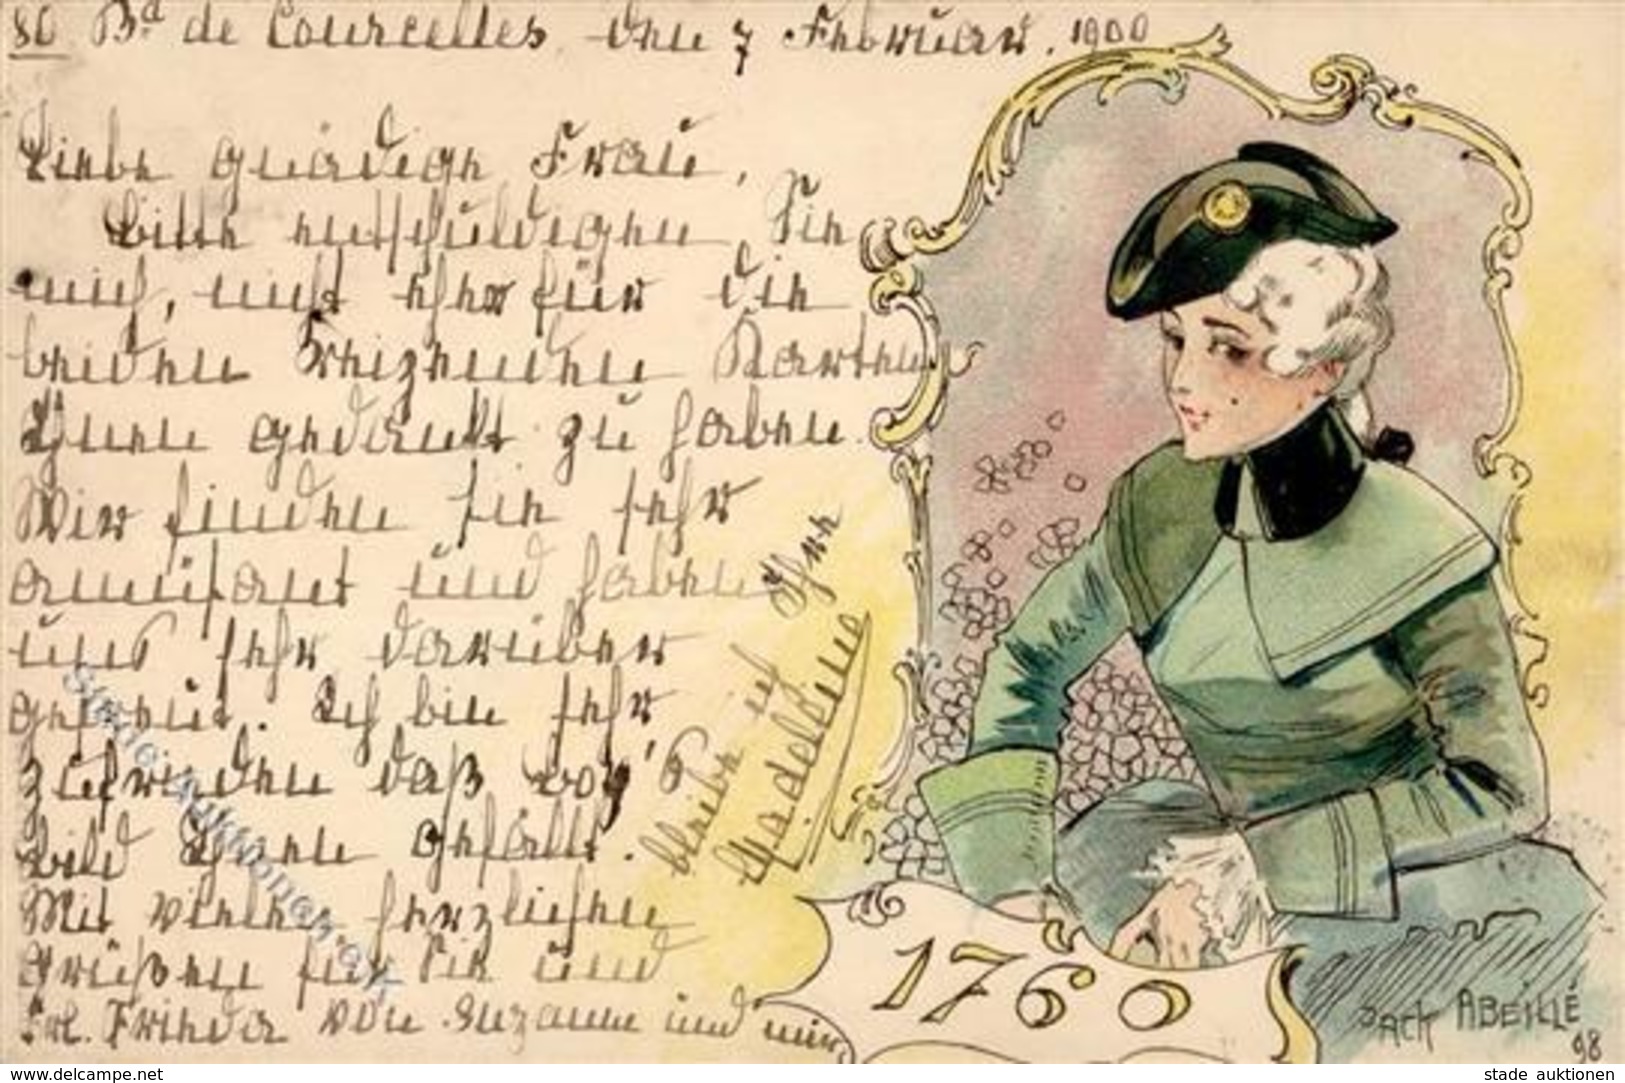 80 Bd de Courcelles, den 7 Februar. 1900
Liebe gnädige Frau,
Bitte entschuldigen Sie
mich, nicht eher für die
beiden Reizenden Karten
Ihnen gedankt zu haben.
Wir finden sie sehr
amüsant und haben
uns sehr darüber
gefreut. Ich bin sehr
zufrieden daß Boy's
Bild Ihnen gefällt.
Mit vielen herzlichen
Grüßen für Sie und
Frl. Frieda von Suzanne und mir,
bleibe ich Ihre
Madeleine
1760
JACK ABEILLÉ
98
stade auktionen o.K.
www.delcampe.net
stade auktionen